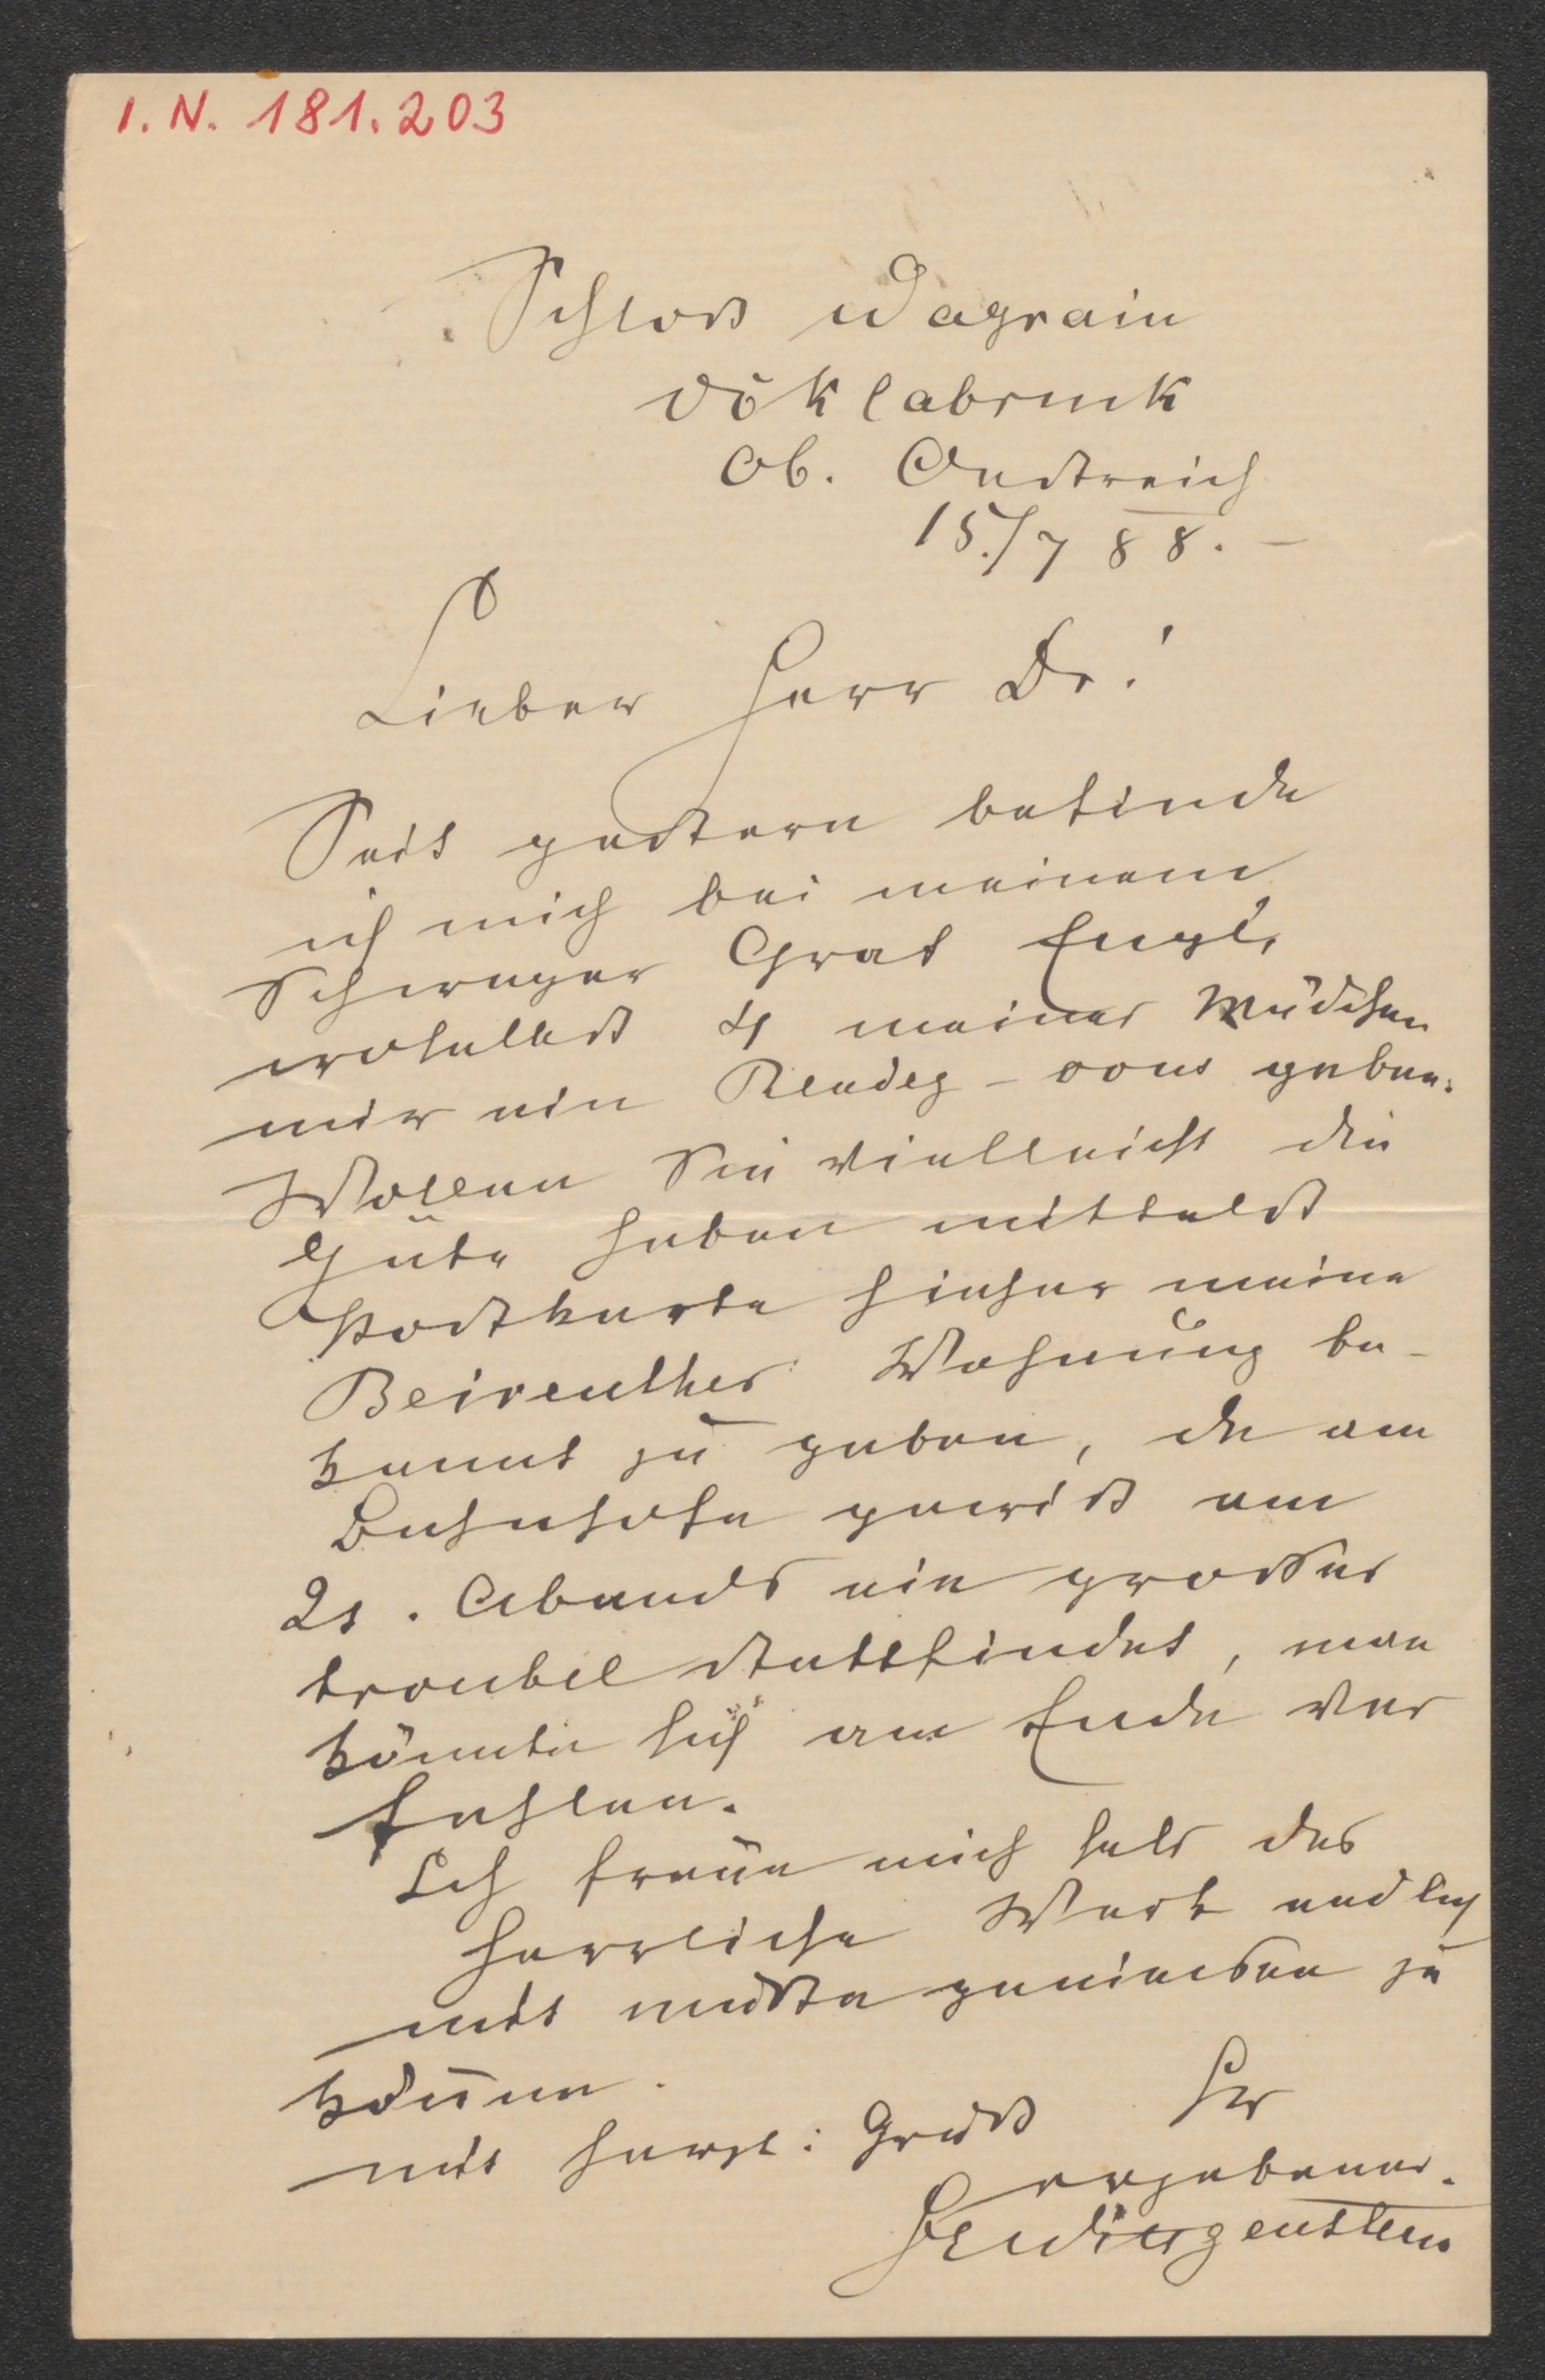 I. N. 181.203
Schloß Wagrain
Vöklabruck
Ob. Oestreich
15./7 88. –
Lieber Herr Dr.!
Seit gestern befinde
ich mich bei meinem
Schwager Graf Engl,
woselbst 4 meiner Mädchen
mir ein Rendez-vous geben.
Wollen Sie vielleicht die
Güte haben mittelst
Postkarte hieher meine
Beireuther Wohnung be-
kannt zu geben, da am
Bahnhofe gewiß am
21. Abends ein großer
troubel stattfindet, man
könnte sich am Ende ver
fehlen.
Ich freue mich sehr das
herrliche Werk endlich
mit Muße genießen zu
können.
mit herzl: Gruß Ihr
ergebener.
FEWittgenstein